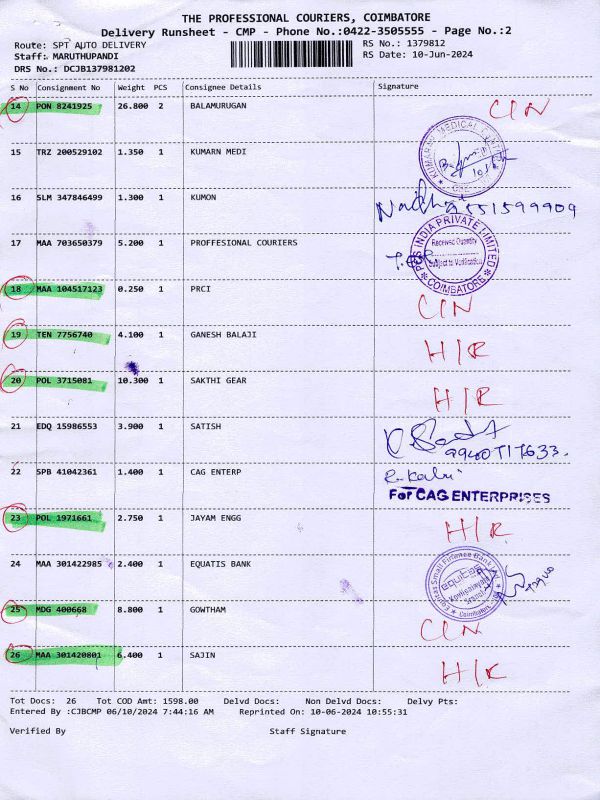 THE PROFESSIONAL COURIERS, COIMBATORE
Delivery Runsheet - CMP - Phone No.:0422-3505555 - Page No.:2
Route: SPT AUTO DELIVERY RS No.: 1379812
Staff: MARUTHUPANDI RS Date: 10-Jun-2024
DRS No.: DCJB137981202
S No Consignment No Weight PCS Consignee Details Signature
14 PON 8241925 26.800 2 BALAMURUGAN CIN
15 TRZ 200529102 1.350 1 KUMARN MEDI
16 SLM 347846499 1.300 1 KUMON
17 MAA 703650379 5.200 1 PROFFESIONAL COURIERS
PCS INDIA PRIVATE LIMITED
Received Quantity
Subject to Verification
COIMBATORE
18 MAA 104517123 0.250 1 PRCI CIN
19 TEN 7756740 4.100 1 GANESH BALAJI H/R
20 POL 3715081 10.300 1 SAKTHI GEAR H/R
21 EDQ 15986553 3.900 1 SATISH
22 SPB 41042361 1.400 1 CAG ENTERP
For CAG ENTERPRISES
23 POL 1971661 2.750 1 JAYAM ENGG H/R
24 MAA 301422985 2.400 1 EQUATIS BANK
Equitas Small Finance Bank Ltd
equitas
25 MDG 400668 8.800 1 GOWTHAM CIN
26 MAA 301420801 6.400 1 SAJIN H/R
Tot Docs: 26 Tot COD Amt: 1598.00 Delvd Docs: Non Delvd Docs: Delvy Pts:
Entered By :CJBCMP 06/10/2024 7:44:16 AM Reprinted On: 10-06-2024 10:55:31
Verified By Staff Signature